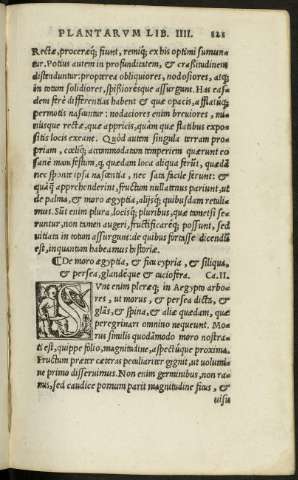 PLANTARVM LIB. IIII. 121
Rectæ, proceræq; fiunt, remiq; ex bis optimi sumun-
tur. Potius autem in profunditatem, & crassitudinem
distenduntur: propterea obliquiores, nodosiores, atq;
in totum solidiores, spissioresque assurgunt. Has eas-
dem ferè differentias habent & quæ opacis, afflatuq;
permotis nascuntur: nodaciores enim breuiores, mi-
nusque rectæ, quæ appricis, quàm quæ flatibus expo-
sitis locis exeant. Quòd autem singula terram pro-
priam, cæliq; accommodatum temperiem quærunt eo
sanè monstestum, q; quædam loca aliqua ferūt, quædā
nec spōnte ipsa nascentia, nec sata facile ferunt: &
quāq; apprehenderint, fructum nullatenus pariunt, ut
de palma, & moro ægyptia, alijsq; quibusdam retuli-
mus. Sūt enim plura, locisq; pluribus, quæ tametsi se-
runtur, non tamen augeri, fructificaréq; possunt, sed
uitiari in totum assurgunt: de quibus fortasse dicendū
est, inquantum habeamus historiæ.
De moro ægyptia, & ficu cypria, & siliqua,
& persea, glandéque & cuciofera. Ca. II.
Sunt enim pleræq; in Aegypto arbo-
res, ut morus, & persea dicta, &
glās, & spina, & aliæ quædam, quæ
peregrinari omnino nequeunt. Mo-
rus similis quodāmodo moro nostra-
ti est, quippe folio, magnitudine, aspectúque proxima.
Fructum præter cæteras peculiariter gignit, ut uolumi-
ne primo disseruimus. Non enim germinibus, non ra-
mis, sed caudice pomum parit magnitudine ficus, &
uisu